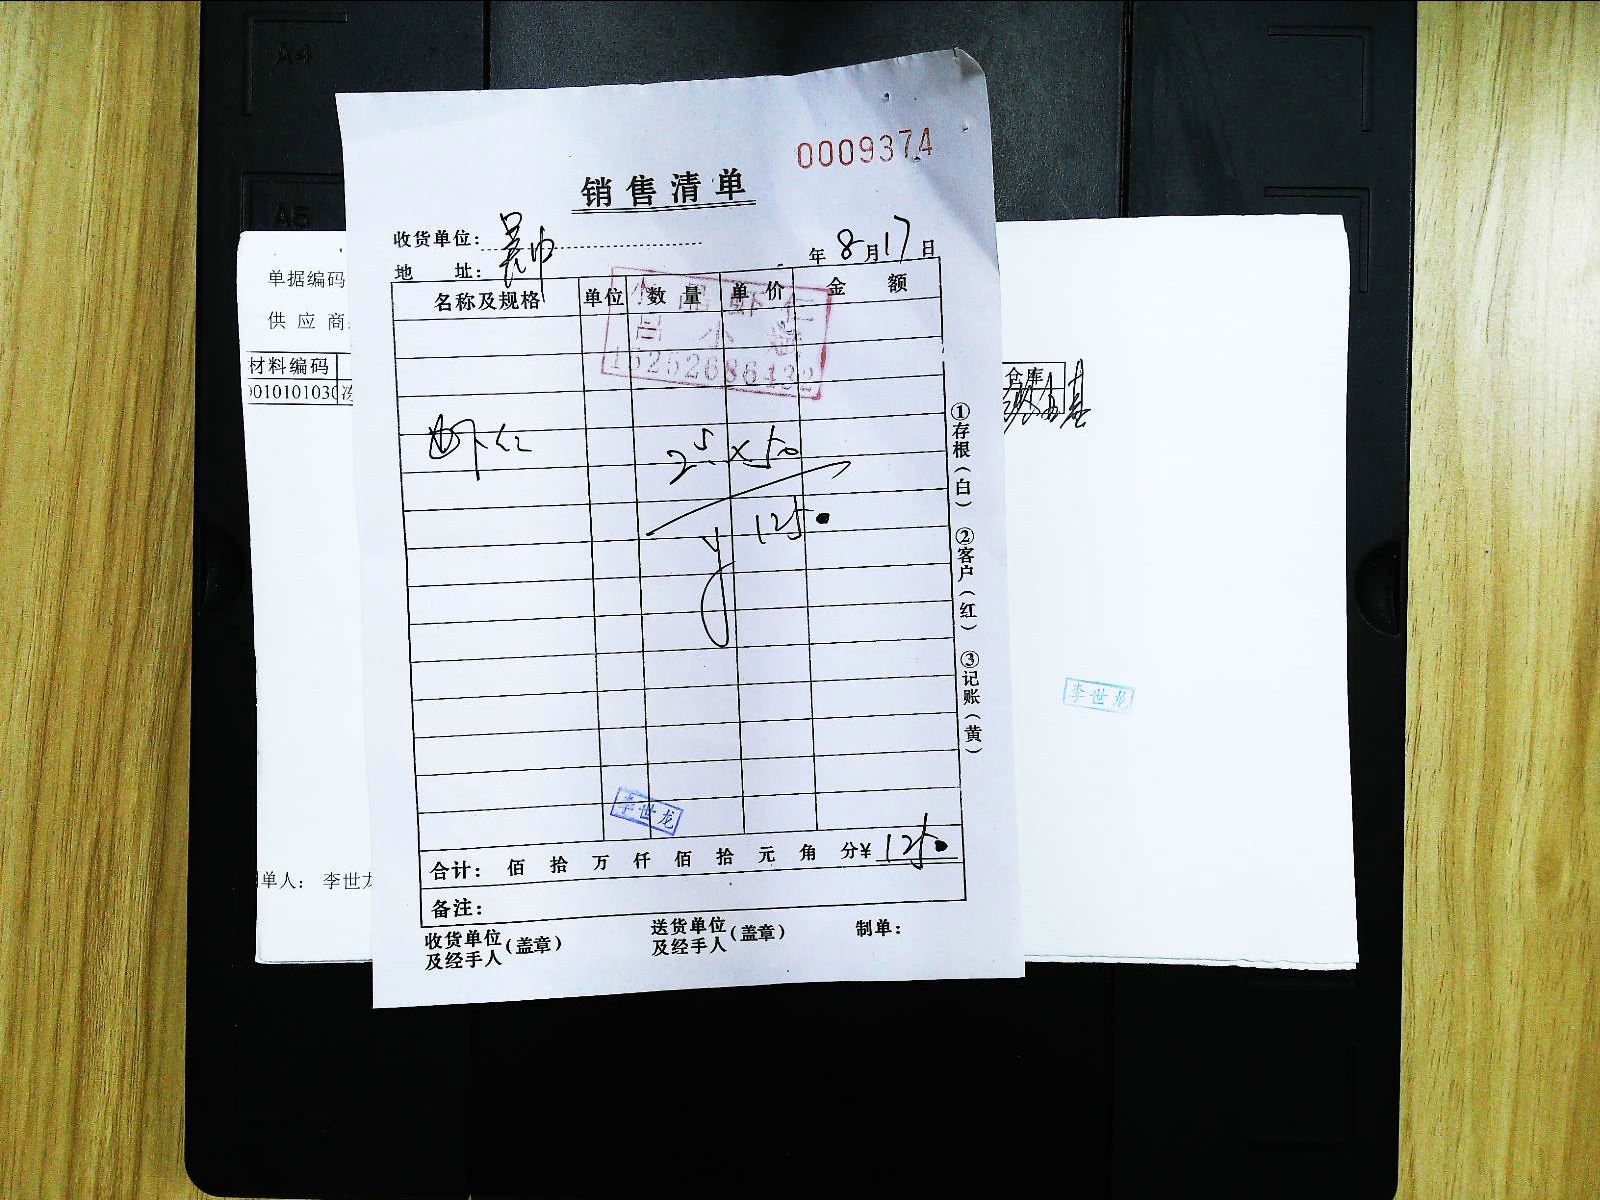 A4
A5
0009374
销售清单
收货单位：
年 8 月 17 日
地 址：
名称及规格 单位 数量 单价 金额
15252686432
虾仁 25 × 50
1250
李世龙
合计： 佰 拾 万 仟 佰 拾 元 角 分￥ 1250
备注：
收货单位及经手人（盖章） 送货单位及经手人（盖章） 制单：
①存根（白） ②客户（红） ③记账（黄）
单据编码
供 应 商
材料编码
仓库
单人： 李世
李世龙